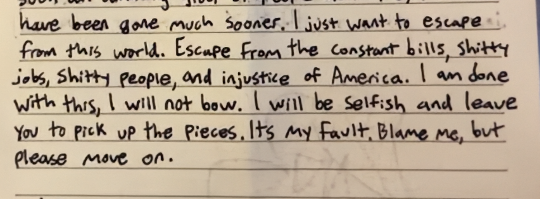 have been gone much sooner. I just want to escape
from this world. Escape from the constant bills, shitty
jobs, shitty people, and injustice of America. I am done
with this, I will not bow. I will be selfish and leave
you to pick up the pieces. Its my fault. Blame me, but
please move on.